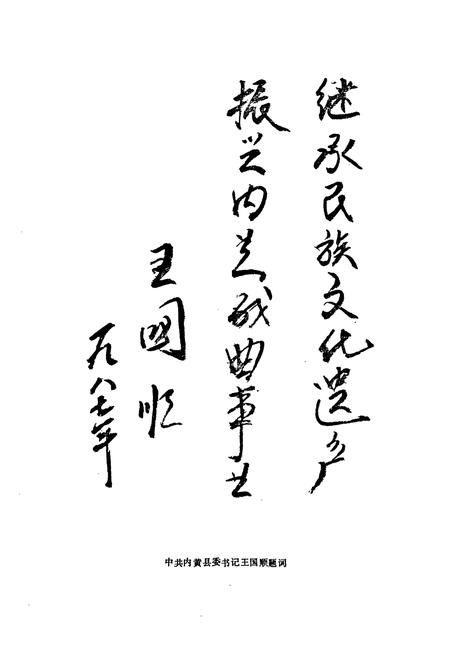 继承民族文化遗产
振兴内黄戏曲事业
王国顺
一九八七年
中共内黄县委书记王国顺题词